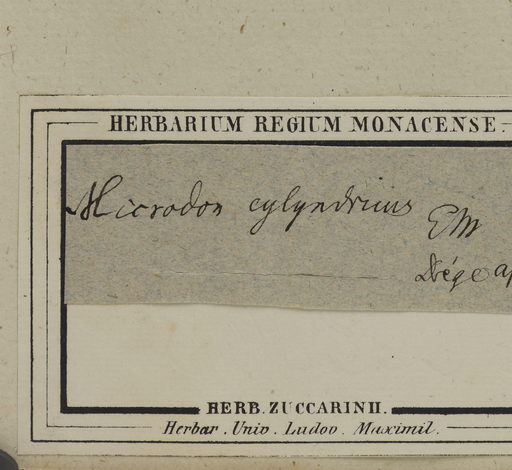 HERBARIUM REGIUM MONACENSE.
Microdon cylyndricus
EM
Dége
HERB. ZUCCARINII.
Herbar. Univ. Ludov. Maximil.